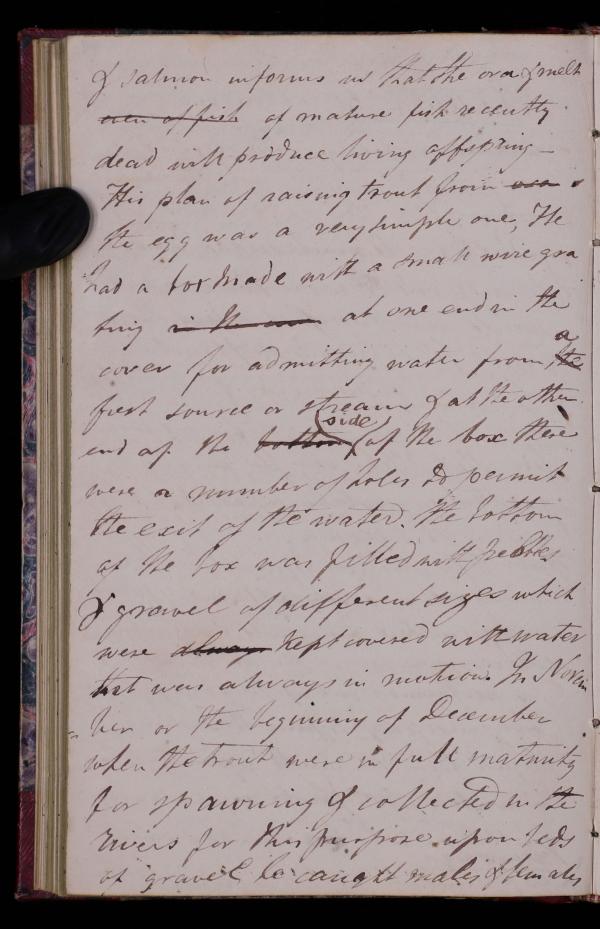 & salmon informs us that the ova & melt
even of fish of mature fish recently
dead will produce living offspring —
His plan of raising trout from ova
the egg was a very simple one, He
had a box made with a small wire gra
ting in the at one end in the
cover for admitting water from, the a
first source or stream & at the other
end of the bottom (side) of the box there
were a number of holes to permit
the exit of the water. The bottom
of the box was filled with pebbles
& gravel of different sizes which
were always kept covered with water
that was always in motion. In Novem
= ber or the beginning of December
when the trout were in full maturity
for spawning & collected in the
rivers for this purpose upon beds
of gravel he caught males & females